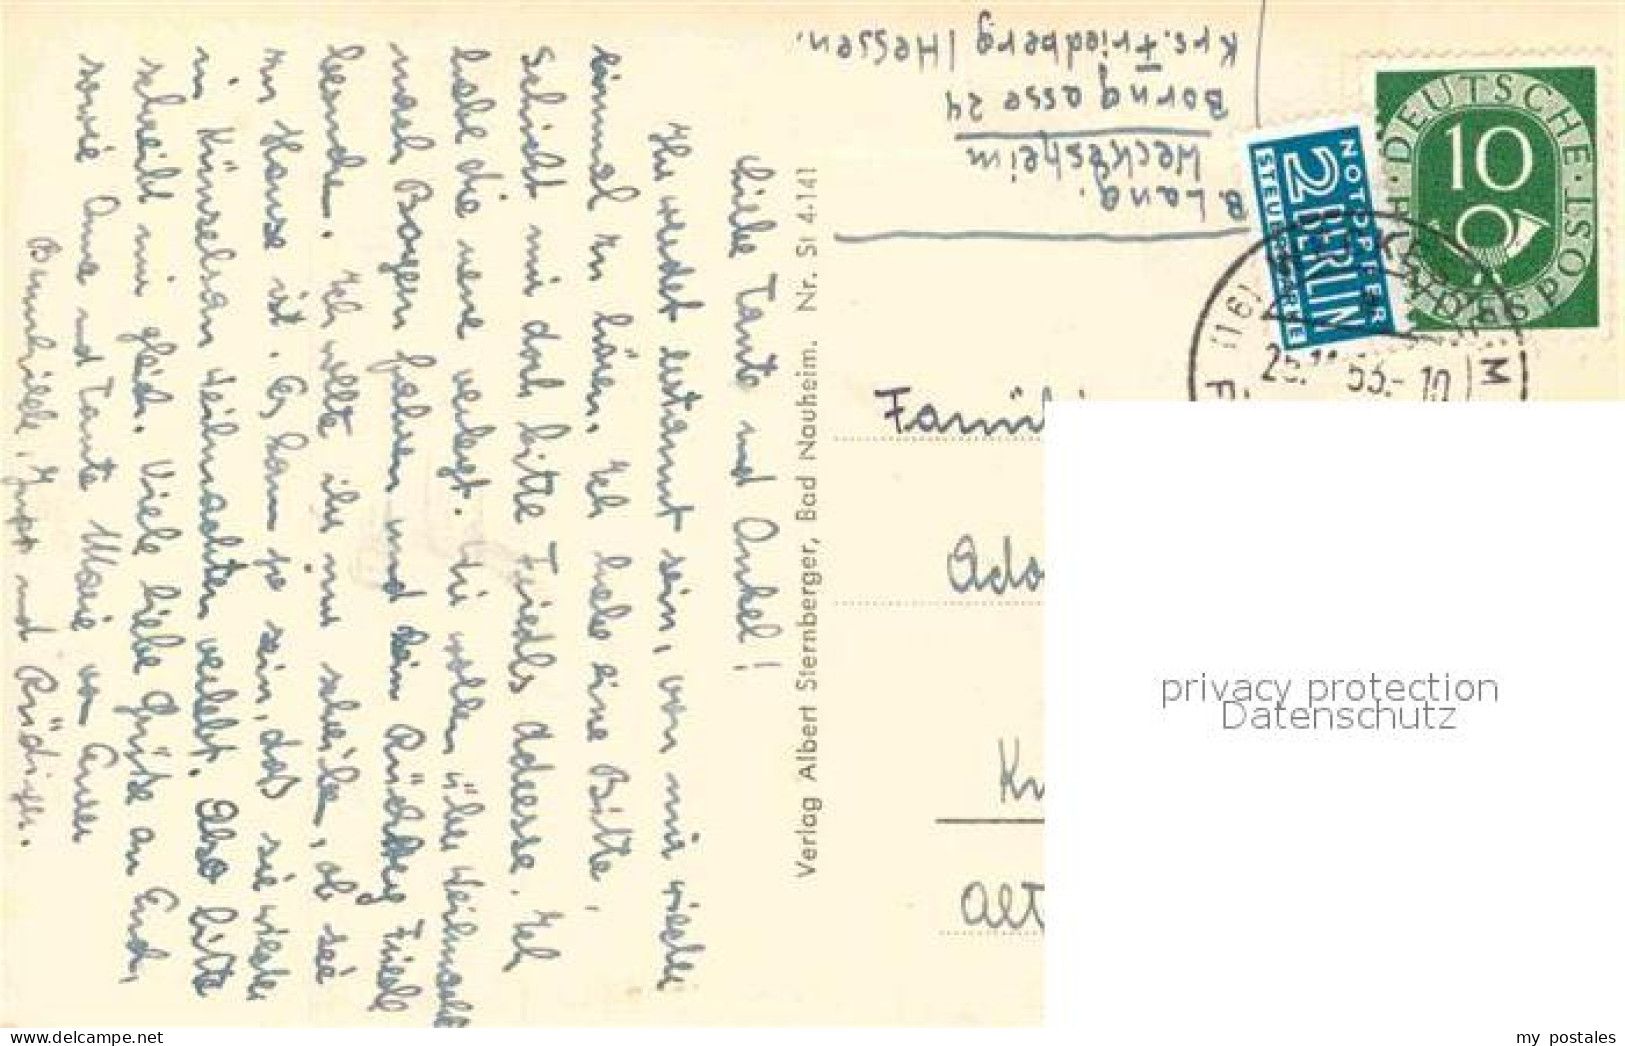 Liebe Tante und Onkel!
Ihr werdet erstaunt sein, von mir wieder
einmal zu hören. Ich habe eine Bitte,
Schickt mir doch bitte Friedls Adresse. Ich
habe die neue verlegt. Wir wollen über Weihnacht
nach Bayern fahren und beim Rückweg Friedl
besuchen. Ich wollte ihr nun schreiben, ob sie
zu Hause ist. Es kann ja sein, daß sie wieder
in Künzelsau Weihnachten verlebt. Also bitte
schreibt mir gleich. Viele liebe Grüße an Euch,
sowie Oma und Tante Marie von Eurer
Brunhilde, und Rüdiger.
Verlag Albert Sternberger, Bad Nauheim. Nr. St 4-141
B. Lang.
Weckesheim
Borngasse 24
Krs. Friedberg / Hessen.
NOTOPFER
2 BERLIN
STEUERMARKE
DEUTSCHE BUNDESPOST
10
(16)
25. 53.- 10
M
F
Famili
Ado
Kr
Alt
privacy protection
Datenschutz
delcampe.net
my_postales